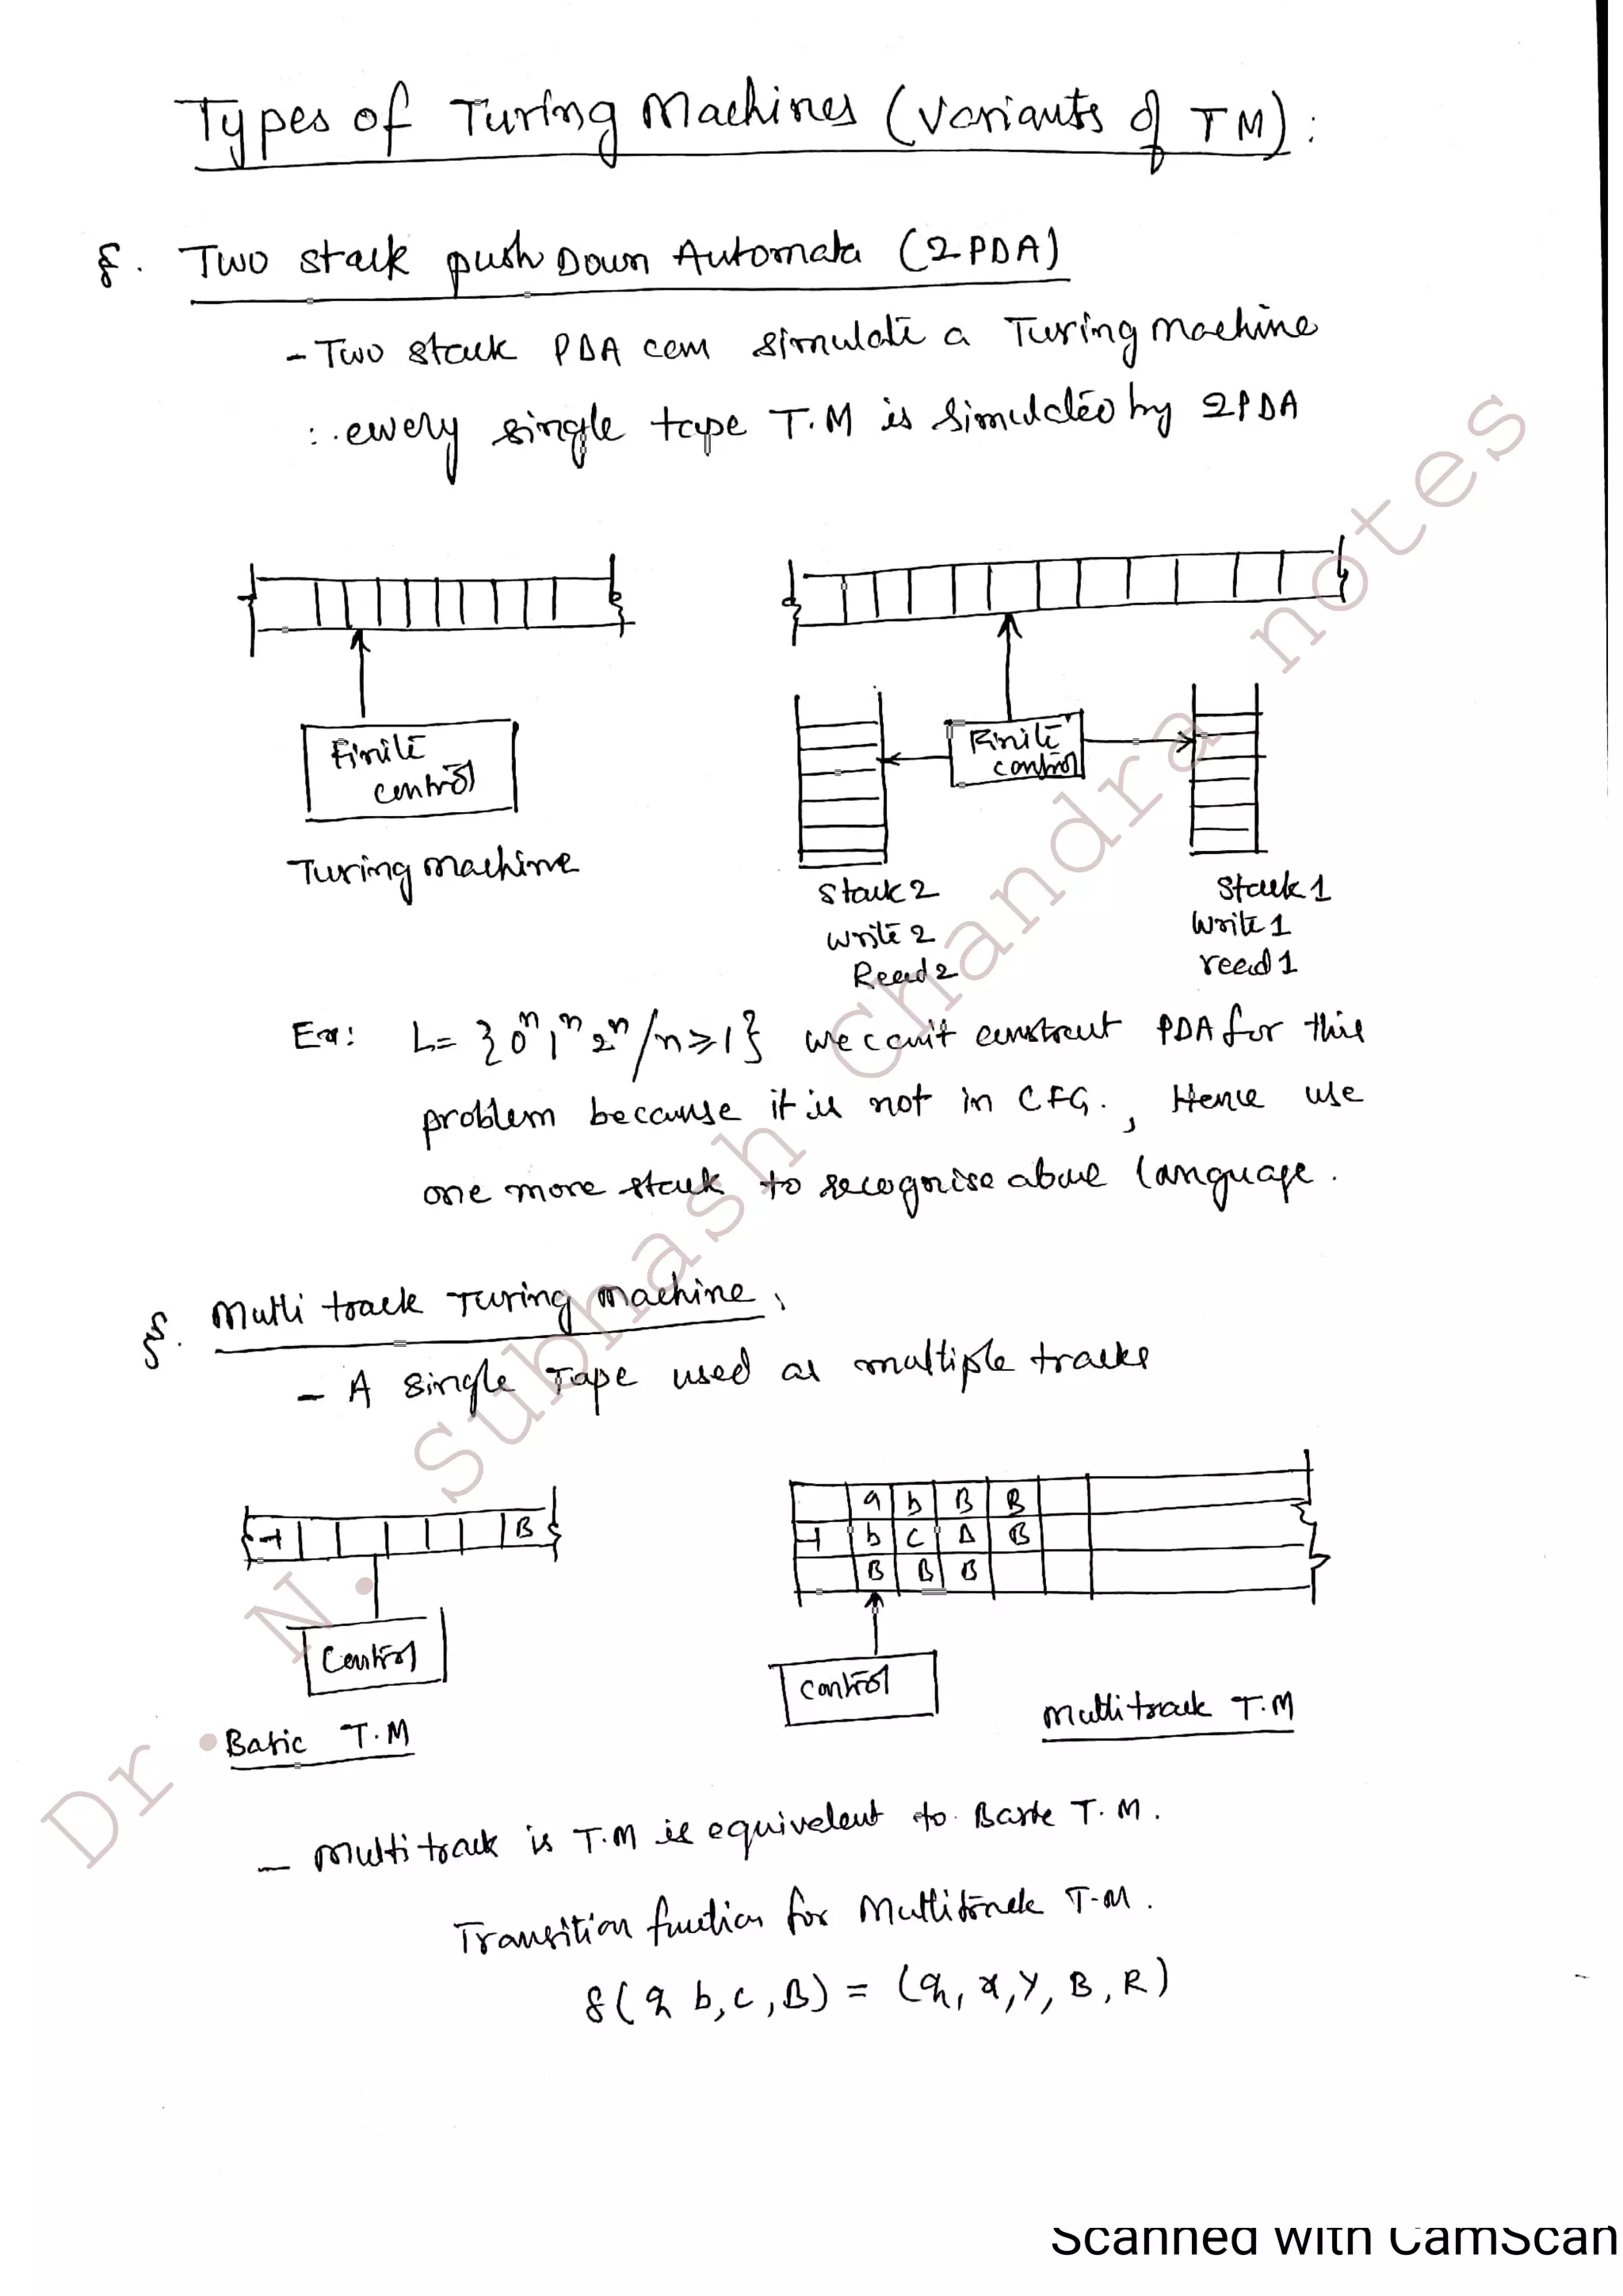 Types of Turing Machines (Variants of TM) :
§. Two stack push Down Automata (2PDA)
- Two stack PDA can simulate a Turing machine
∴ every single tape T.M is simulated by 2PDA
Finite control
Finite control
Turing machine
Stack 2
Stack 1
Write 2
Write 1
Read 2
read 1
Ex: L= {0ⁿ1ⁿ2ⁿ/n≥1} we can't construct PDA for this
problem because it is not in CFG. , Hence use
one more stack to recognise above language .
§. Multi track Turing machine .
- A single Tape used as multiple tracks
a b B B
⊣ B
⊣ b c Δ B
B B B
Control
Control
Basic T.M
Multitrack T.M
- Multi track is T.M is equivalent to Basic T.M .
Transition function for Multitrack T.M .
δ(q b,c,B) = (q₁, x,y, B, R)
Dr. N. Subhash Chandra notes
Scanned with CamScan